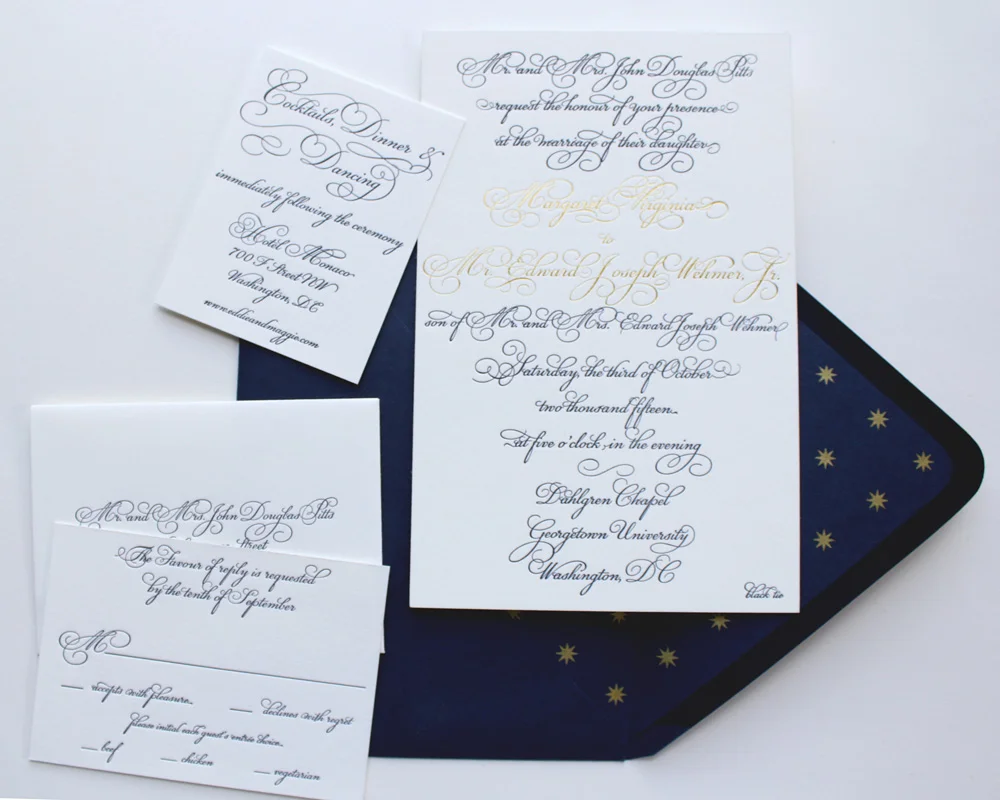 Mr. and Mrs. John Douglas Pitts
request the honour of your presence
at the marriage of their daughter
Margaret Virginia
to
Mr. Edward Joseph Wehmer, Jr.
son of Mr. and Mrs. Edward Joseph Wehmer
Saturday, the third of October
two thousand fifteen
at five o'clock in the evening
Dahlgren Chapel
Georgetown University
Washington, DC
black tie
Cocktails, Dinner &
Dancing
immediately following the ceremony
Hotel Monaco
700 F Street NW
Washington, DC
www.eddieandmaggie.com
Mr. and Mrs. John Douglas Pitts
Street
The Favour of reply is requested
by the tenth of September
M
accepts with pleasure
declines with regret
please initial each guest's entrée choice
beef
chicken
vegetarian